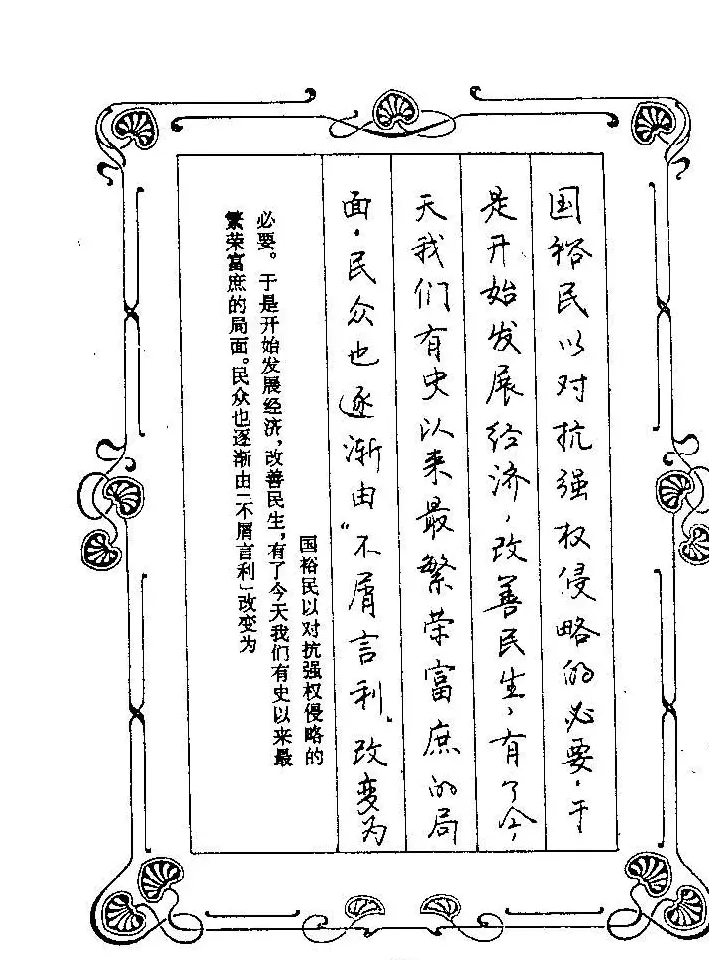 国裕民以对抗强权侵略的必要.于
是开始发展经济,改善民生,有了今
天我们有史以来最繁荣富庶的局
面.民众也逐渐由“不屑言利”改变为
国裕民以对抗强权侵略的
必要。于是开始发展经济,改善民生,有了今天我们有史以来最
繁荣富庶的局面。民众也逐渐由「不屑言利」改变为